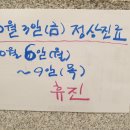 0월 3일(금) 정상진료
0월 6일(월)
~9일(목)
휴진